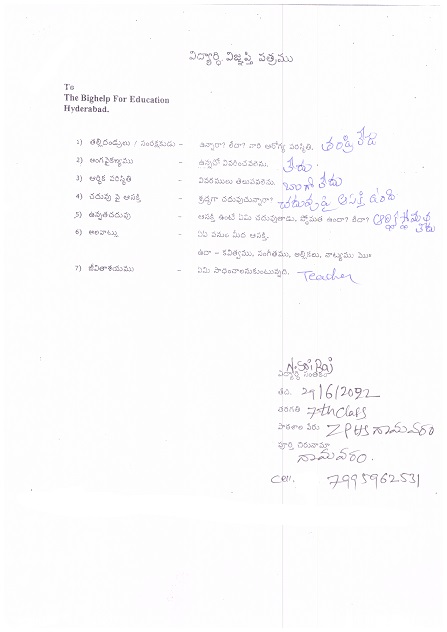 విద్యార్థి విజ్ఞప్తి పత్రము
To
The Bighelp For Education
Hyderabad.
1) తల్లిదండ్రులు / సంరక్షకుడు – ఉన్నారా? లేదా? వారి ఆరోగ్య పరిస్థితి. తండ్రి లేడు
2) అంగవైకల్యము – ఉన్నచో వివరించవలెను. లేదు.
3) ఆర్థిక పరిస్థితి – వివరములు తెలుపవలెను. బాగా లేదు
4) చదువు పై ఆసక్తి – శ్రద్ధగా చదువుచున్నారా? చదువుపై ఆసక్తి ఉంది
5) ఉన్నతచదువు – ఆసక్తి ఉంటే ఏమి చదువుతాడు, స్తోమత ఉందా? లేదా? ఆర్థిక స్తోమత లేదు
6) అలవాట్లు – ఏఏ పనుల మీద ఆసక్తి.
ఉదా – కవిత్వము, సంగీతము, అల్లికలు, నాట్యము మొ॥
7) జీవితాశయము – ఏమి సాధించాలనుకుంటున్నది. Teacher
N. Sai Raj
విద్యార్థి సంతకం
తేది. 29/6/2022
తరగతి 7th Class
పాఠశాల పేరు ZPHS రామవరం
పూర్తి చిరునామా
రామవరం.
Cell. 7995962531